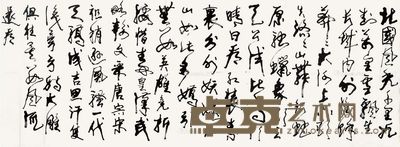 北國風光千里冰
封萬里雪飄望
長城内外惟餘
莽莽大河上下
頓失滔滔山舞銀蛇
原馳蠟象欲與
天公試比高須
晴日看紅裝素
裹分外妖嬈江
山如此多嬌引
無數英雄競折
腰惜秦皇漢武
略輸文采唐宗宋
祖稍遜風騷一代
天驕成吉思汗只
識彎弓射大雕
俱往矣數風流
還看